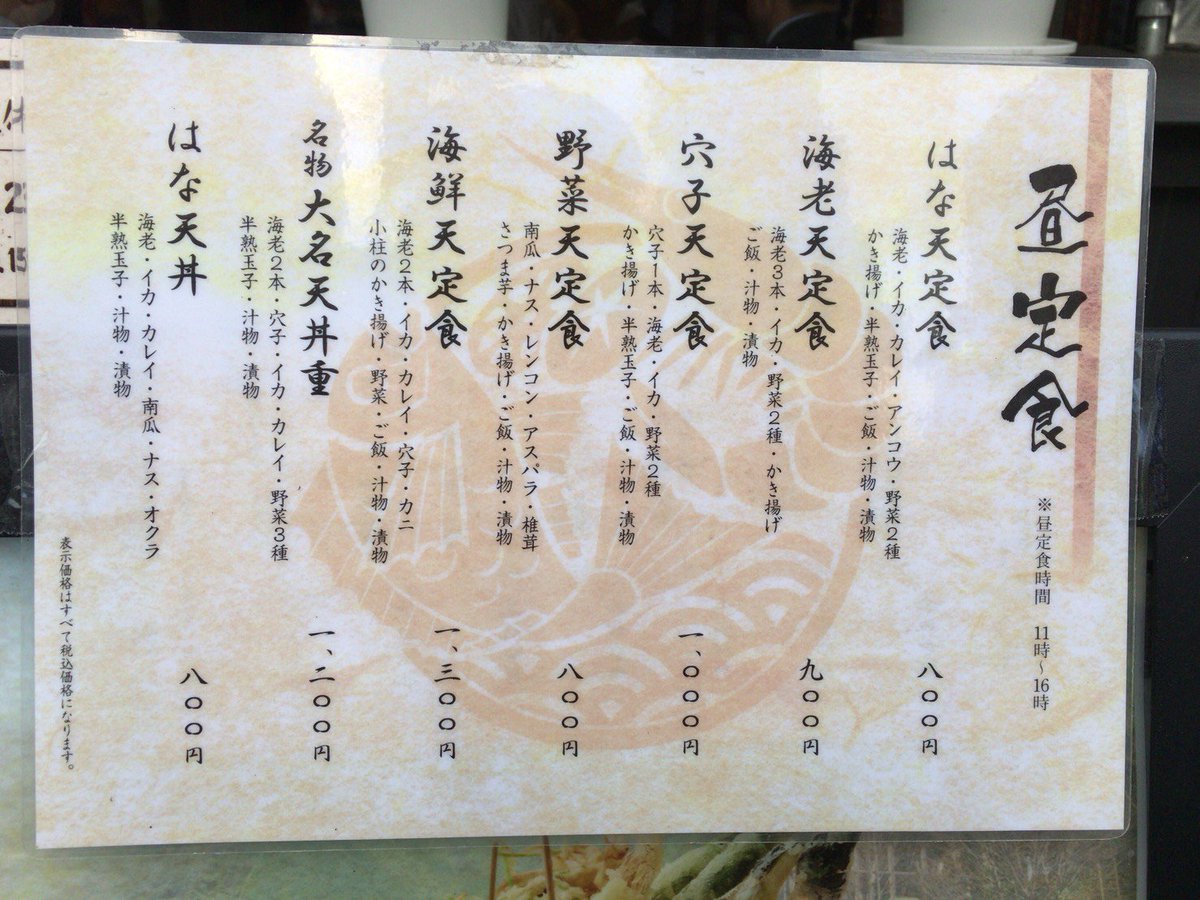 昼定食
※昼定食時間　11時〜16時
はな天定食
海老・イカ・カレイ・アンコウ・野菜2種
かき揚げ・半熟玉子・ご飯・汁物・漬物
八〇〇円
海老天定食
海老3本・イカ・野菜2種・かき揚げ
ご飯・汁物・漬物
九〇〇円
穴子天定食
穴子1本・海老・イカ・野菜2種
かき揚げ・半熟玉子・ご飯・汁物・漬物
一、〇〇〇円
野菜天定食
南瓜・ナス・レンコン・アスパラ・椎茸
さつま芋・かき揚げ・ご飯・汁物・漬物
八〇〇円
海鮮天定食
海老2本・イカ・カレイ・穴子・カニ
小柱のかき揚げ・野菜・ご飯・汁物・漬物
一、三〇〇円
名物 大名天丼重
海老2本・穴子・イカ・カレイ・野菜3種
半熟玉子・汁物・漬物
一、二〇〇円
はな天丼
海老・イカ・カレイ・南瓜・ナス・オクラ
半熟玉子・汁物・漬物
八〇〇円
表示価格はすべて税込価格になります。